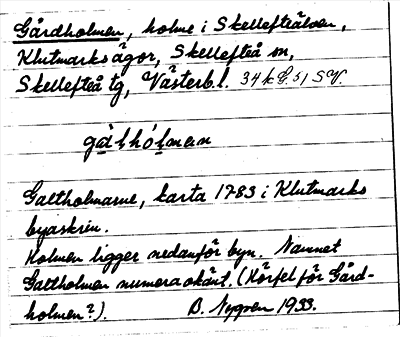 Gårdholmen, holme i Skellefteälven,
Klutmarks ägor, Skellefteå sn,
Skellefteå tg, Västerb. l. 34 k G. 51 SV.
gàlhólmen
Galtholmarne, karta 1783 i Klutmarks
byaskrin.
Holmen ligger nedanför byn. Namnet
Galtholmen numera okänt. (Hörfel för Gård-
holmen?). B. Nygren 1933.